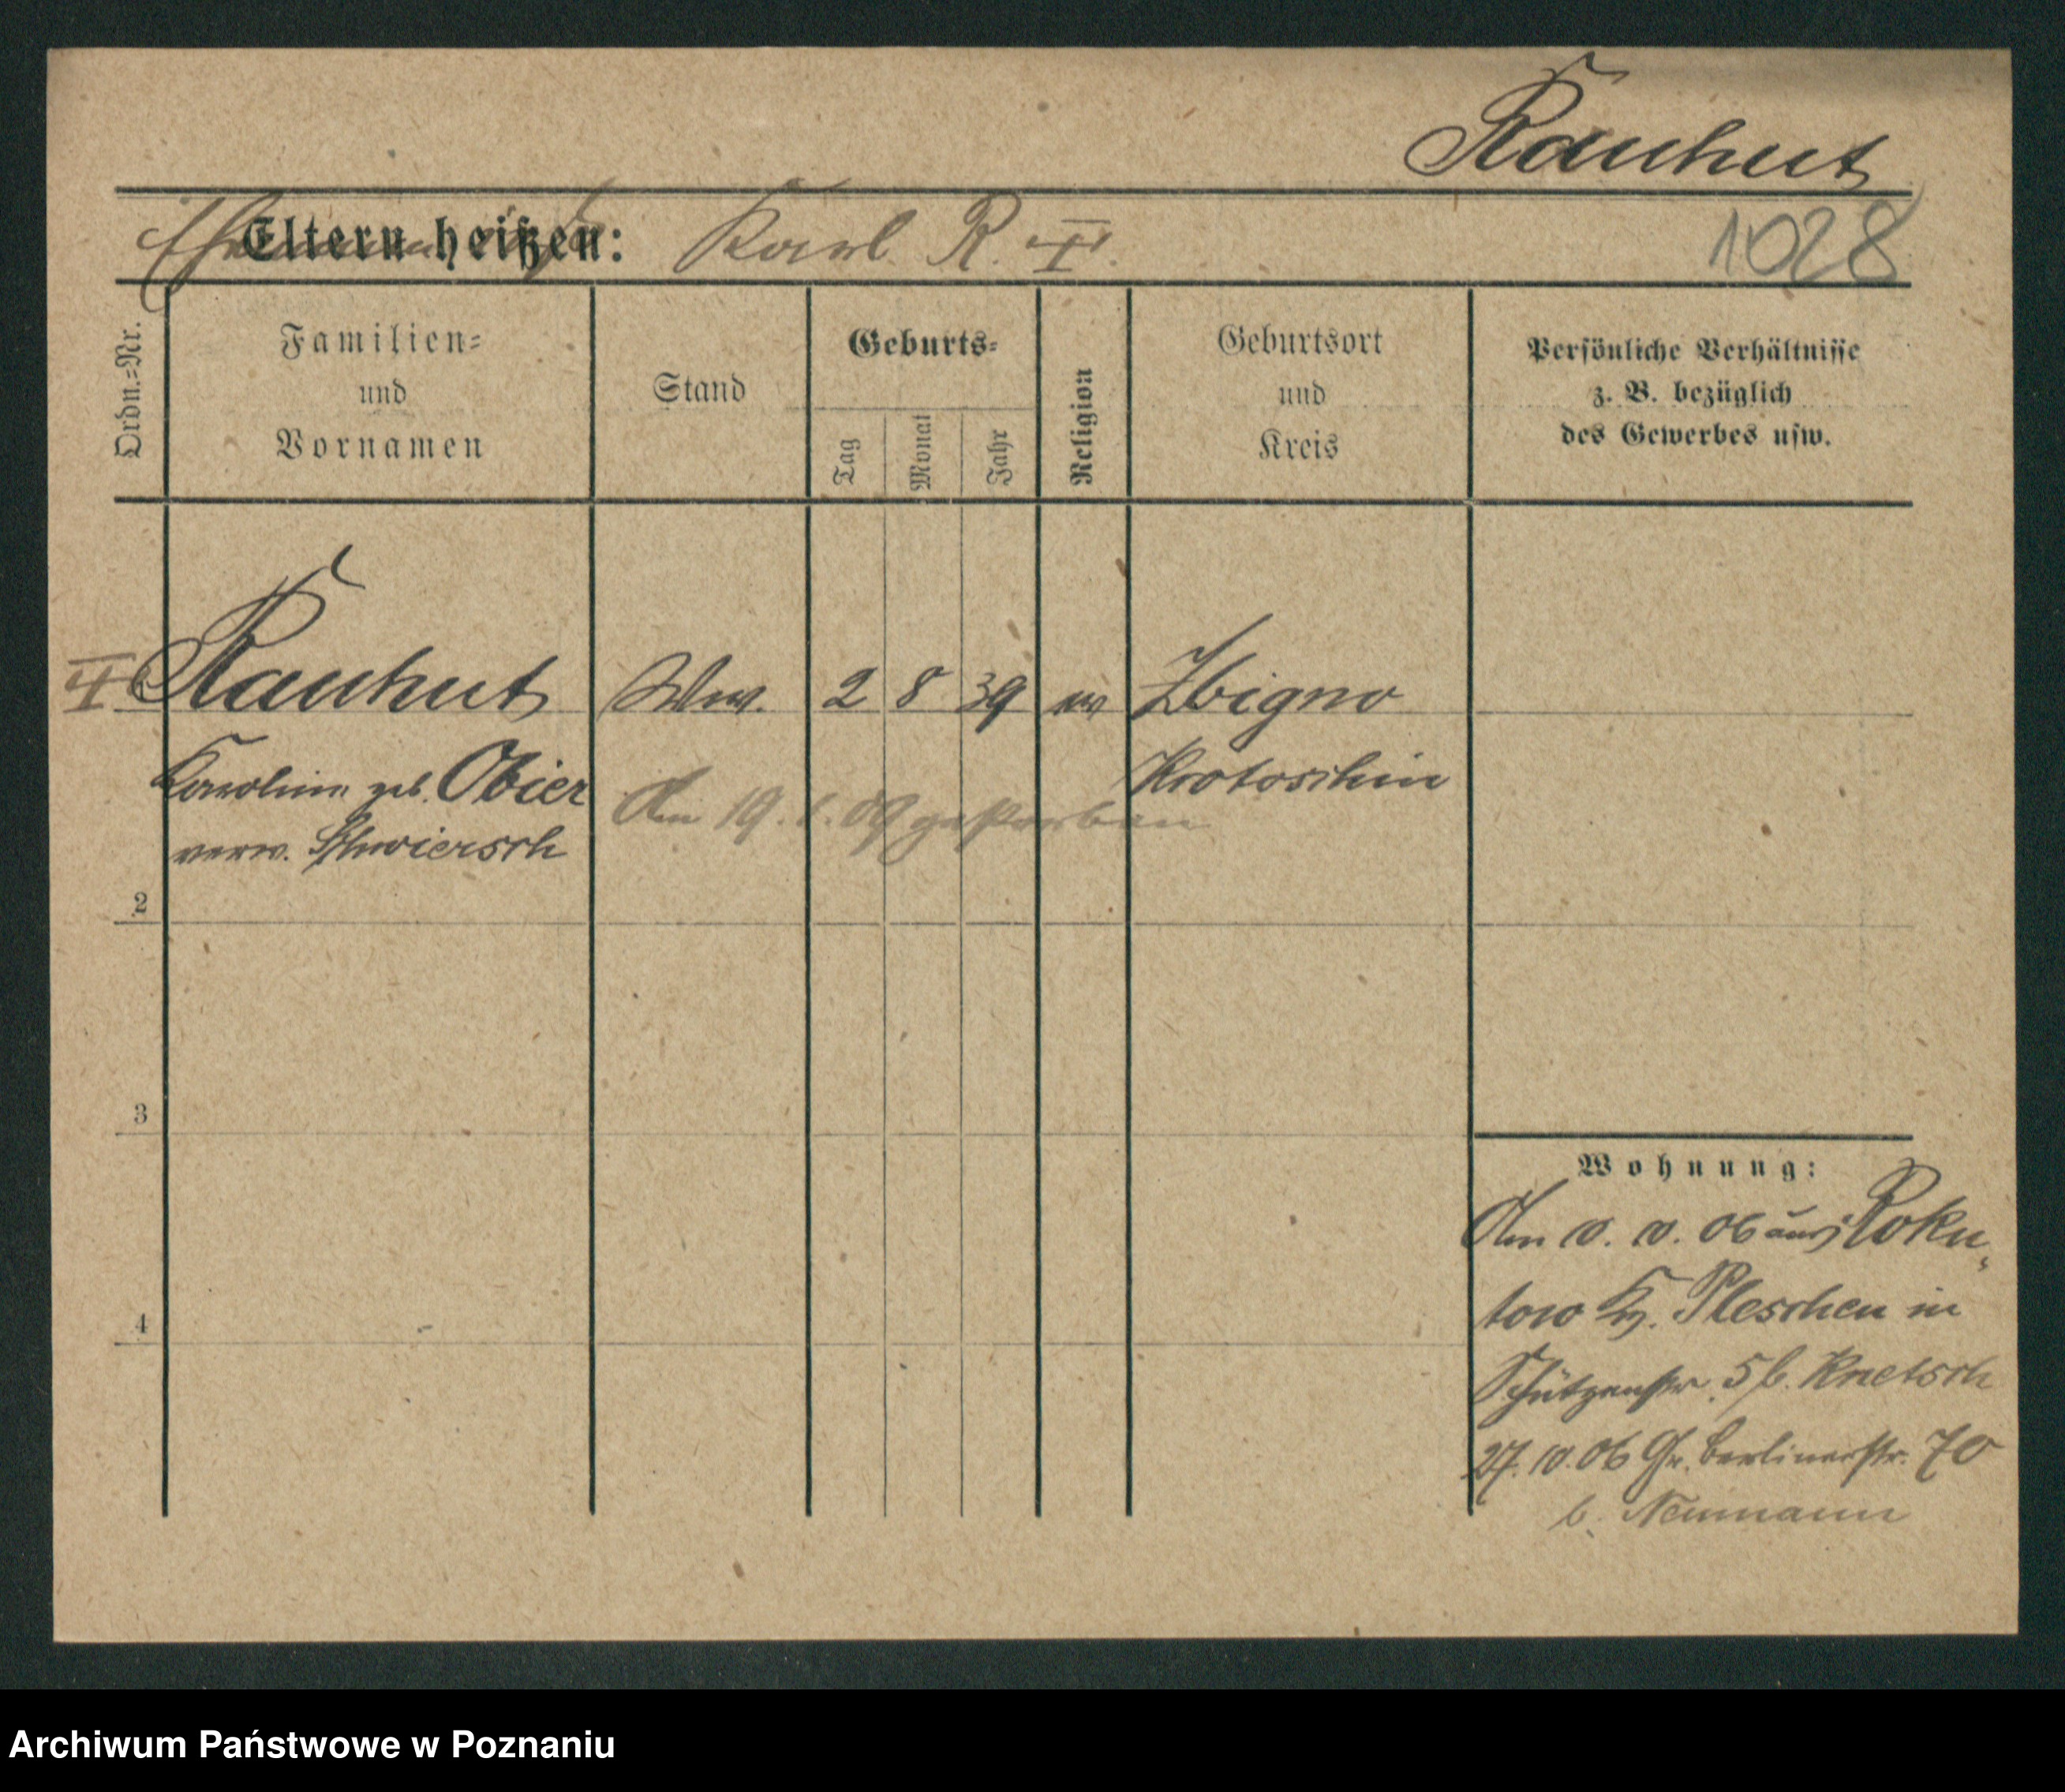 Rauhut
Eltern heißen: Karl R. II.
1028
Ordn.=Nr.
Familien=
und
Vornamen
Stand
Geburts=
Tag
Monat
Jahr
Religion
Geburtsort
und
Kreis
Persönliche Verhältnisse
z. B. bezüglich
des Gewerbes usw.
II Rauhut Ww. 2 8 39 ev Zbigno
Karoline geb. Obier Krotoschin
Am 19. 1. 09 gestorben
verw. Schwiersch
2
3
4
Wohnung:
Am 10. 10. 06 aus Roku„
tow Kr. Pleschen in
Schützenstr. 5 b. Knetsch
27. 10. 06 Gr. Berlinerstr. 70
b. Neumann
Archiwum Państwowe w Poznaniu